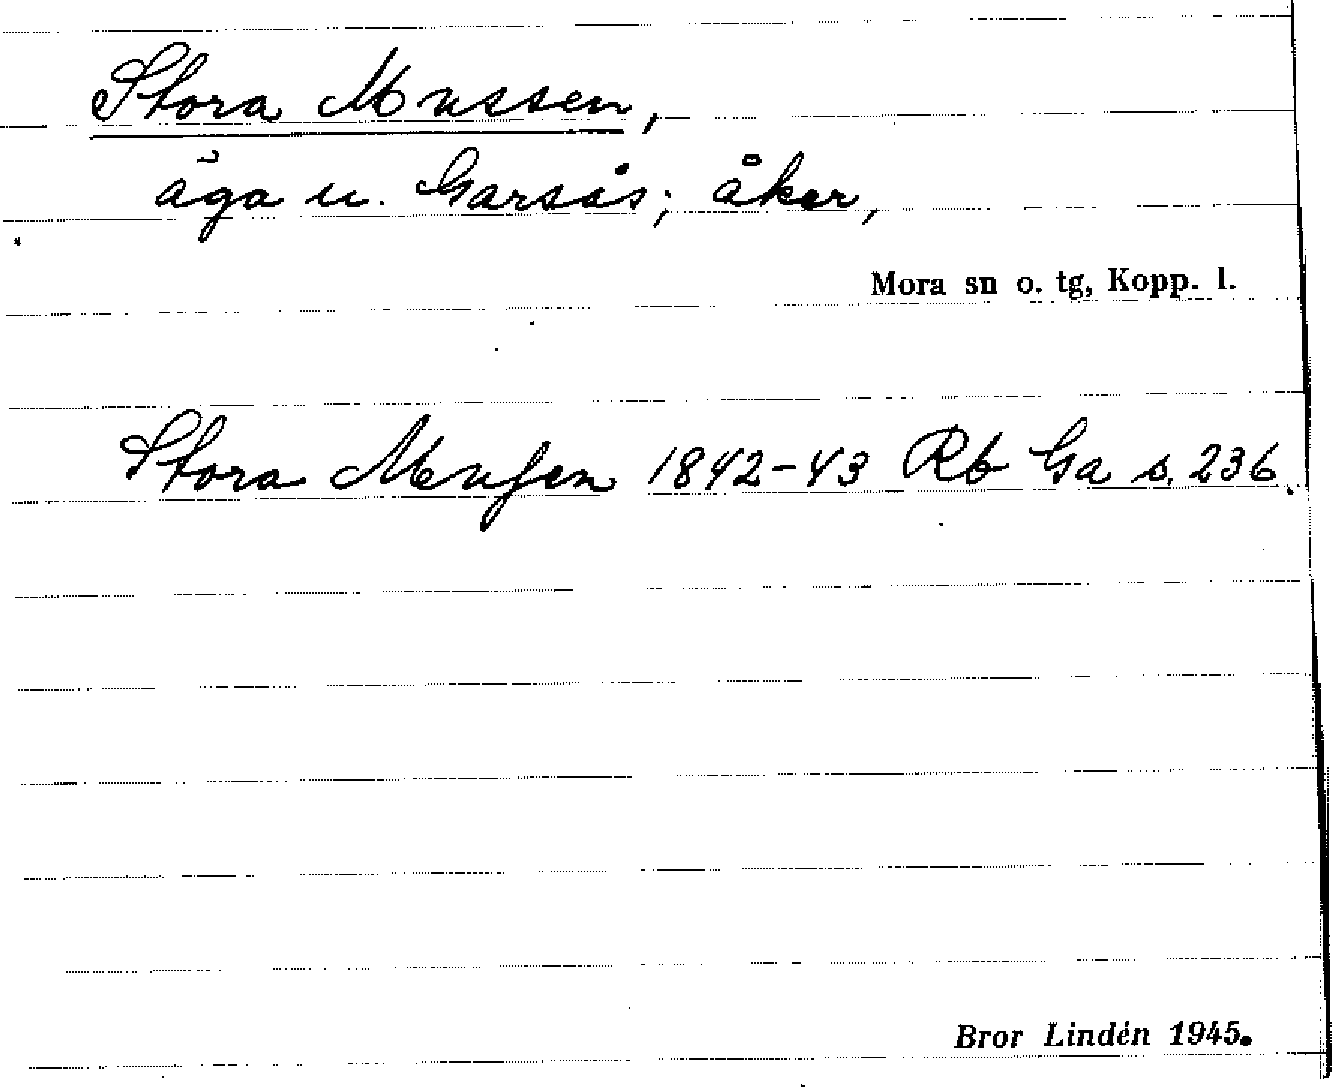 Stora Mussen,
äga u. Garsås; åker,
Mora sn o. tg, Kopp. l.
Stora Musen 1842-43 Rb Ga s. 236.
Bror Lindén 1945.